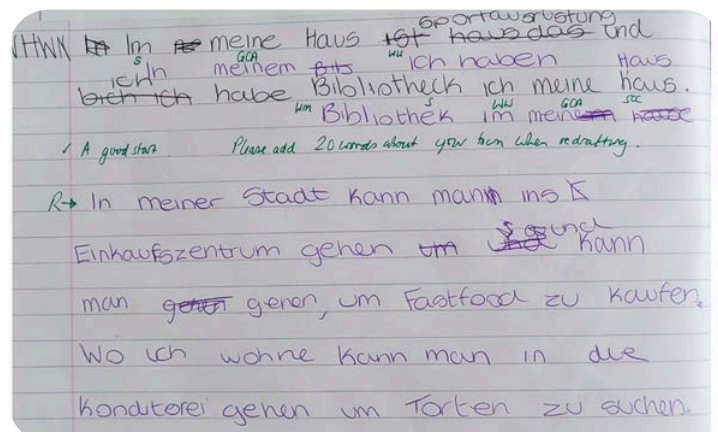 Sportausrüstung
Im meine Haus ist haus das und
S GCA WW
In meinem ich haben Haus
ich
habe Bibliotheck ich meine haus.
WM S WW GCA SCC
Bibliothek im meinem
✓ A good start. Please add 20 words about your town when redrafting.
R→ In meiner Stadt kann man ins
Einkaufszentrum gehen und kann
man gehen, um Fastfood zu kaufen.
Wo ich wohne kann man in die
Konditorei gehen um Torten zu suchen.